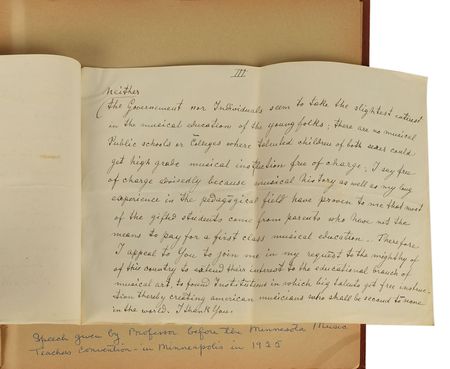 III.
Neither
(the Government nor Individuals seem to take the slightest interest
in the musical education of the young folks; there are no musical
Public schools or Colleges where talented children of both sexes could
get high grade musical instruction free of charge; I say free
of charge advisedly because musical history as well as my long
experience in the pedagogical field have proven to me that most
of the gifted students come from parents who have not the
means to pay for a first class musical education. Therefore
I appeal to You to join me in my request to the mighty of
of this country to extend their interest to the educational branch of
musical art, to found Institutions in which big talents get free instruc-
tion thereby creating american musicians who shall be second to none
in the world. I thank You.
Speech given by Professor before the Minnesota Music
Teachers Convention - in Minneapolis in 1925